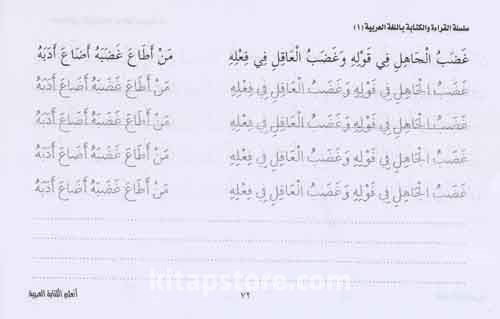 سلسلة القراءة والكتابة باللغة العربية (١)
غَضَبُ الْجَاهِلِ فِي قَوْلِهِ وَغَضَبُ الْعَاقِلِ فِي فِعْلِهِ مَنْ أَطَاعَ غَضَبَهُ أَضَاعَ أَدَبَهُ
غَضَبُ الْجَاهِلِ فِي قَوْلِهِ وَغَضَبُ الْعَاقِلِ فِي فِعْلِهِ مَنْ أَطَاعَ غَضَبَهُ أَضَاعَ أَدَبَهُ
غَضَبُ الْجَاهِلِ فِي قَوْلِهِ وَغَضَبُ الْعَاقِلِ فِي فِعْلِهِ مَنْ أَطَاعَ غَضَبَهُ أَضَاعَ أَدَبَهُ
غَضَبُ الْجَاهِلِ فِي قَوْلِهِ وَغَضَبُ الْعَاقِلِ فِي فِعْلِهِ مَنْ أَطَاعَ غَضَبَهُ أَضَاعَ أَدَبَهُ
غَضَبُ الْجَاهِلِ فِي قَوْلِهِ وَغَضَبُ الْعَاقِلِ فِي فِعْلِهِ مَنْ أَطَاعَ غَضَبَهُ أَضَاعَ أَدَبَهُ
kitapstore.com
٧٢ أتعلم الكتابة العربية